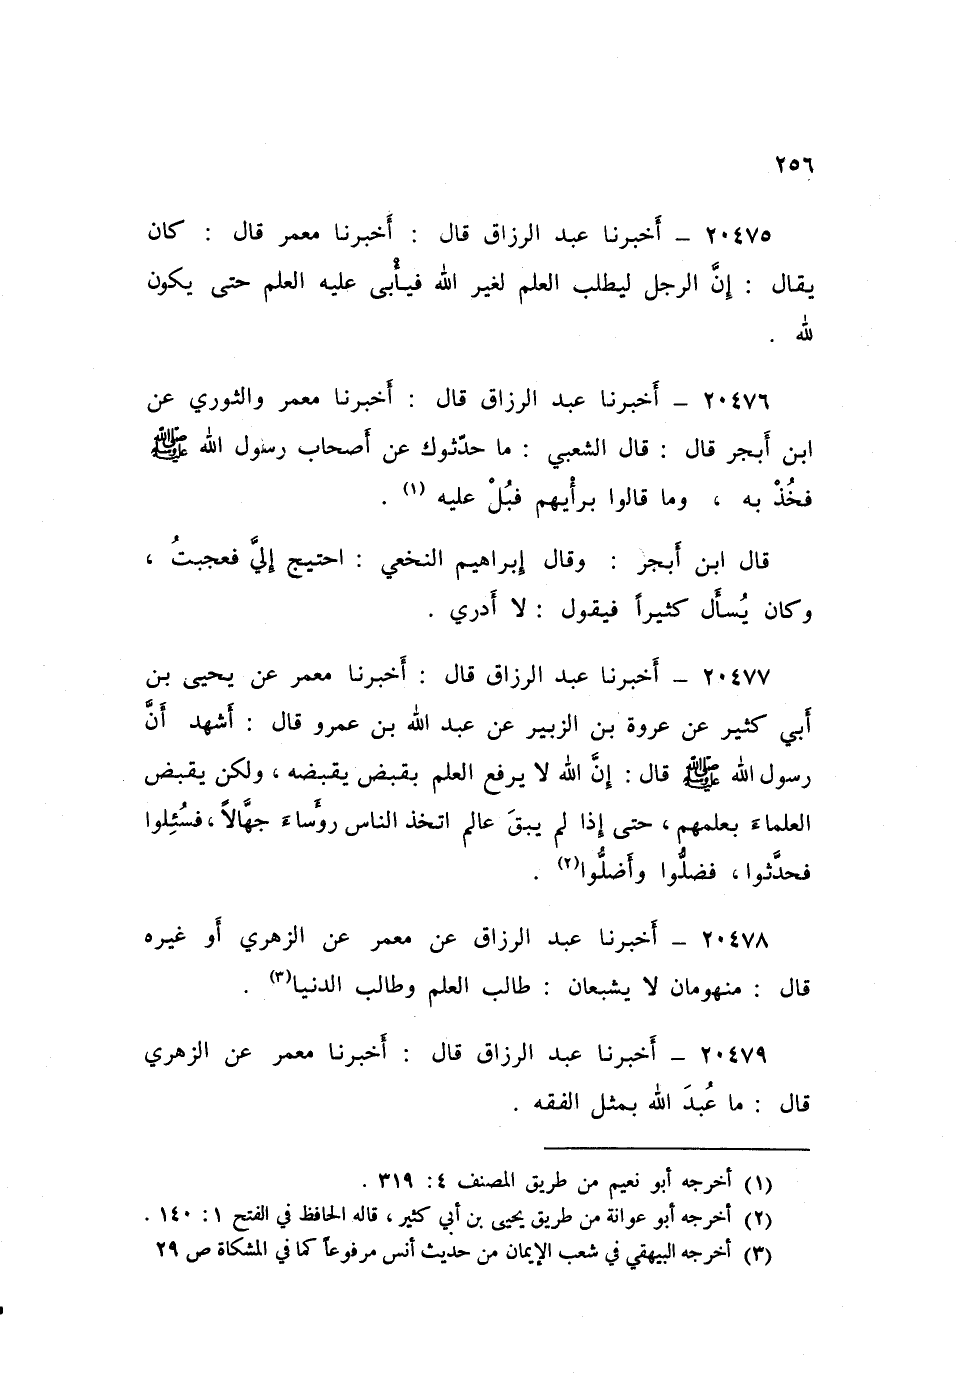 ٢٥٦
٢٠٤٧٥ ــ أَخبرنا عبد الرزاق قال : أَخبرنا معمر قال : كان
يقال : إِنَّ الرجل ليطلب العلم لغير الله فيأْبى عليه العلم حتى يكون
لله .
٢٠٤٧٦ ــ أَخبرنا عبد الرزاق قال : أَخبرنا معمر والثوري عن
ابن أَبجر قال : قال الشعبي : ما حدّثوك عن أَصحاب رسول الله ﷺ
فخُذْ به ، وما قالوا برأْيهم فبُلْ عليه (١) .
قال ابن أَبجر : وقال إِبراهيم النخعي : احتيج إِليَّ فعجبتُ ،
وكان يُسأَل كثيراً فيقول : لا أَدري .
٢٠٤٧٧ ــ أَخبرنا عبد الرزاق قال : أَخبرنا معمر عن يحيى بن
أَبي كثير عن عروة بن الزبير عن عبد الله بن عمرو قال : أَشهد أَنَّ
رسول الله ﷺ قال : إِنَّ الله لا يرفع العلم بقبض يقبضه ، ولكن يقبض
العلماءَ بعلمهم ، حتى إِذا لم يبقَ عالم اتخذ الناس روَٴساءَ جهَّالاً ، فسُئِلوا
فحدَّثوا ، فضلُّوا وأَضلُّوا(٢) .
٢٠٤٧٨ ــ أَخبرنا عبد الرزاق عن معمر عن الزهري أَو غيره
قال : منهومان لا يشبعان : طالب العلم وطالب الدنيا(٣) .
٢٠٤٧٩ ــ أَخبرنا عبد الرزاق قال : أَخبرنا معمر عن الزهري
قال : ما عُبدَ الله بمثل الفقه .
(١) أخرجه أبو نعيم من طريق المصنف ٤ : ٣١٩ .
(٢) أخرجه أبو عوانة من طريق يحيى بن أبي كثير ، قاله الحافظ في الفتح ١ : ١٤٠ .
(٣) أخرجه البيهقي في شعب الإيمان من حديث أنس مرفوعاً كما في المشكاة ص ٢٩